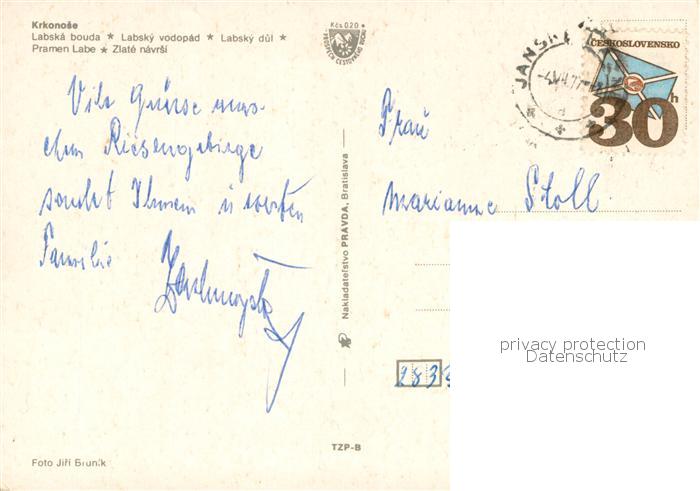 Krkonoše
Labská bouda ★ Labský vodopád ★ Labský důl ★
Pramen Labe ★ Zlaté návrší
Kčs 0,20
ČESKOSLOVENSKO
30 h
JANSKÉ
Viele Grüsse aus
dem Riesengebirge
sendet Ihnen u
Familie
Frau
Marianne Stoll
Nakladatelstvo PRAVDA, Bratislava
283
privacy protection
Datenschutz
TZP-B
Foto Jiří Bruník